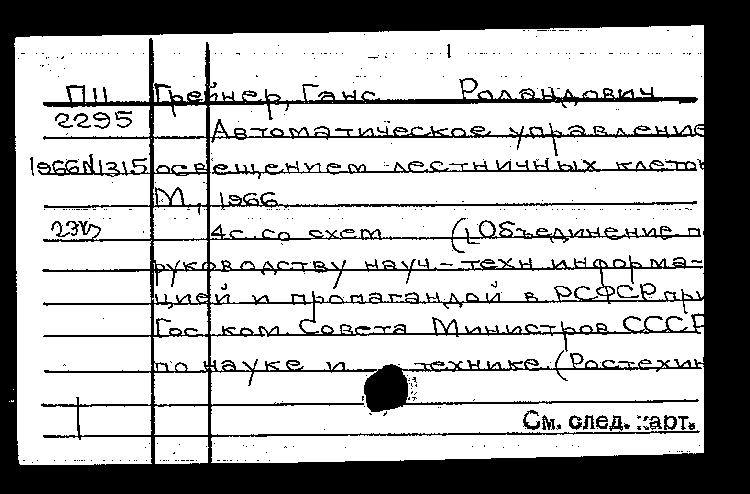 П11 Грейнер, Ганс Роландович
2295
Автоматическое управление
1966N1315 освещением лестничных клеток
М., 1966
4с. со схем. (Объединение п
руководству науч.-техн информа-
цией и пропагандой в РСФСР при
Гос. ком. Совета Министров СССР
по науке и технике (Ростехин
См. след. карт.